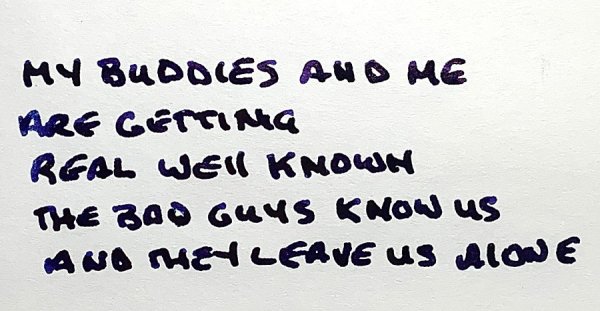 MY BUDDIES AND ME
ARE GETTING
REAL WEll KNOWN
THE BAD GUYS KNOW US
AND THEY LEAVE US AlONE